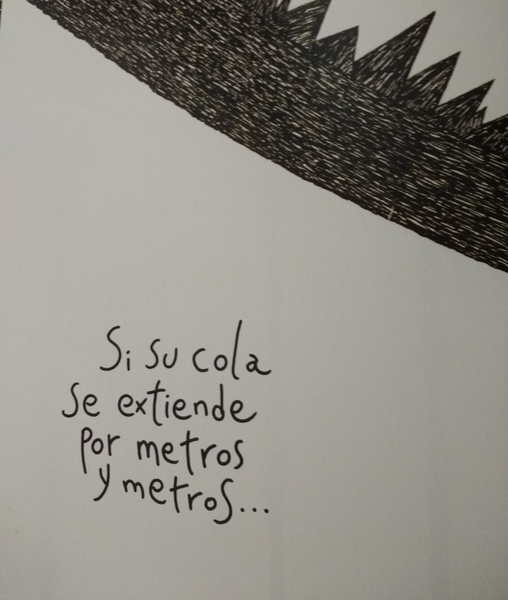 Si su cola
se extiende
por metros
y metros...